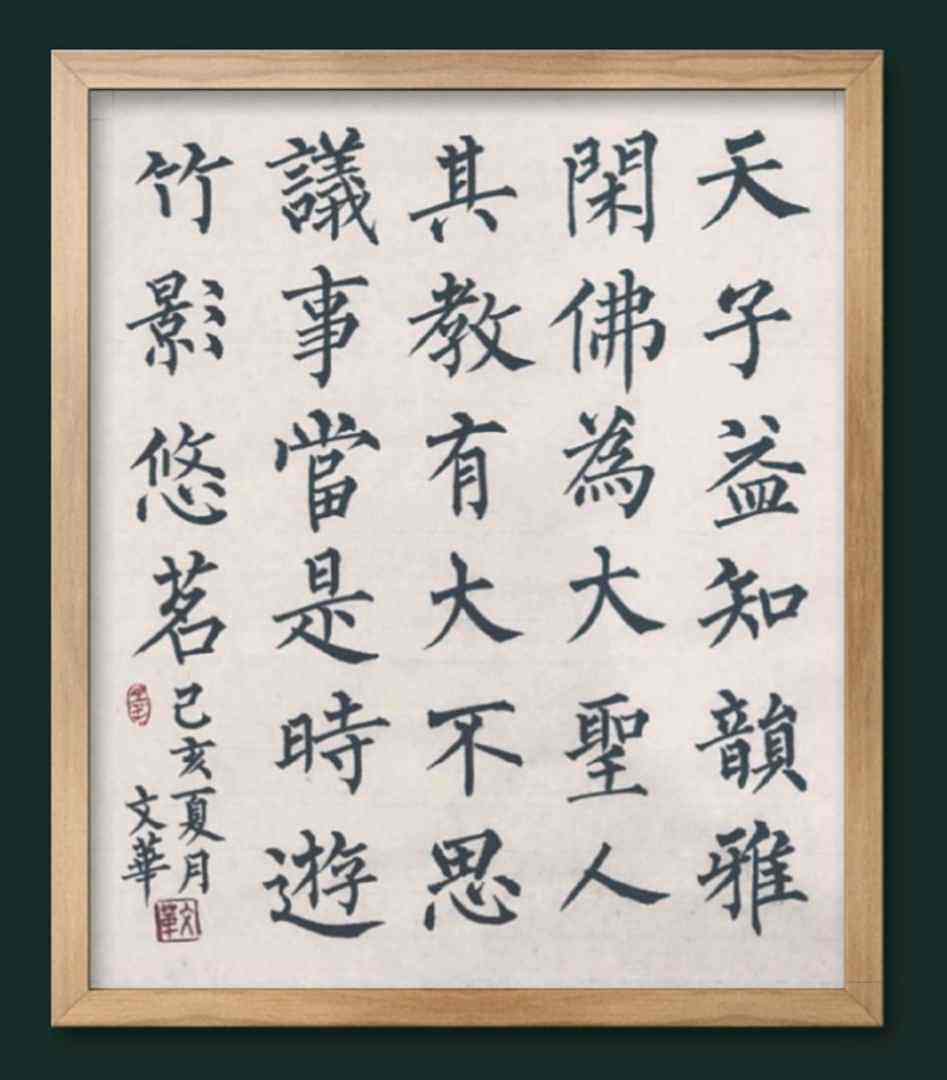 天子益知韻雅
閑佛為大聖人
其教有大不思
議事當是時遊
竹影悠茗
己亥夏月
文華
文華